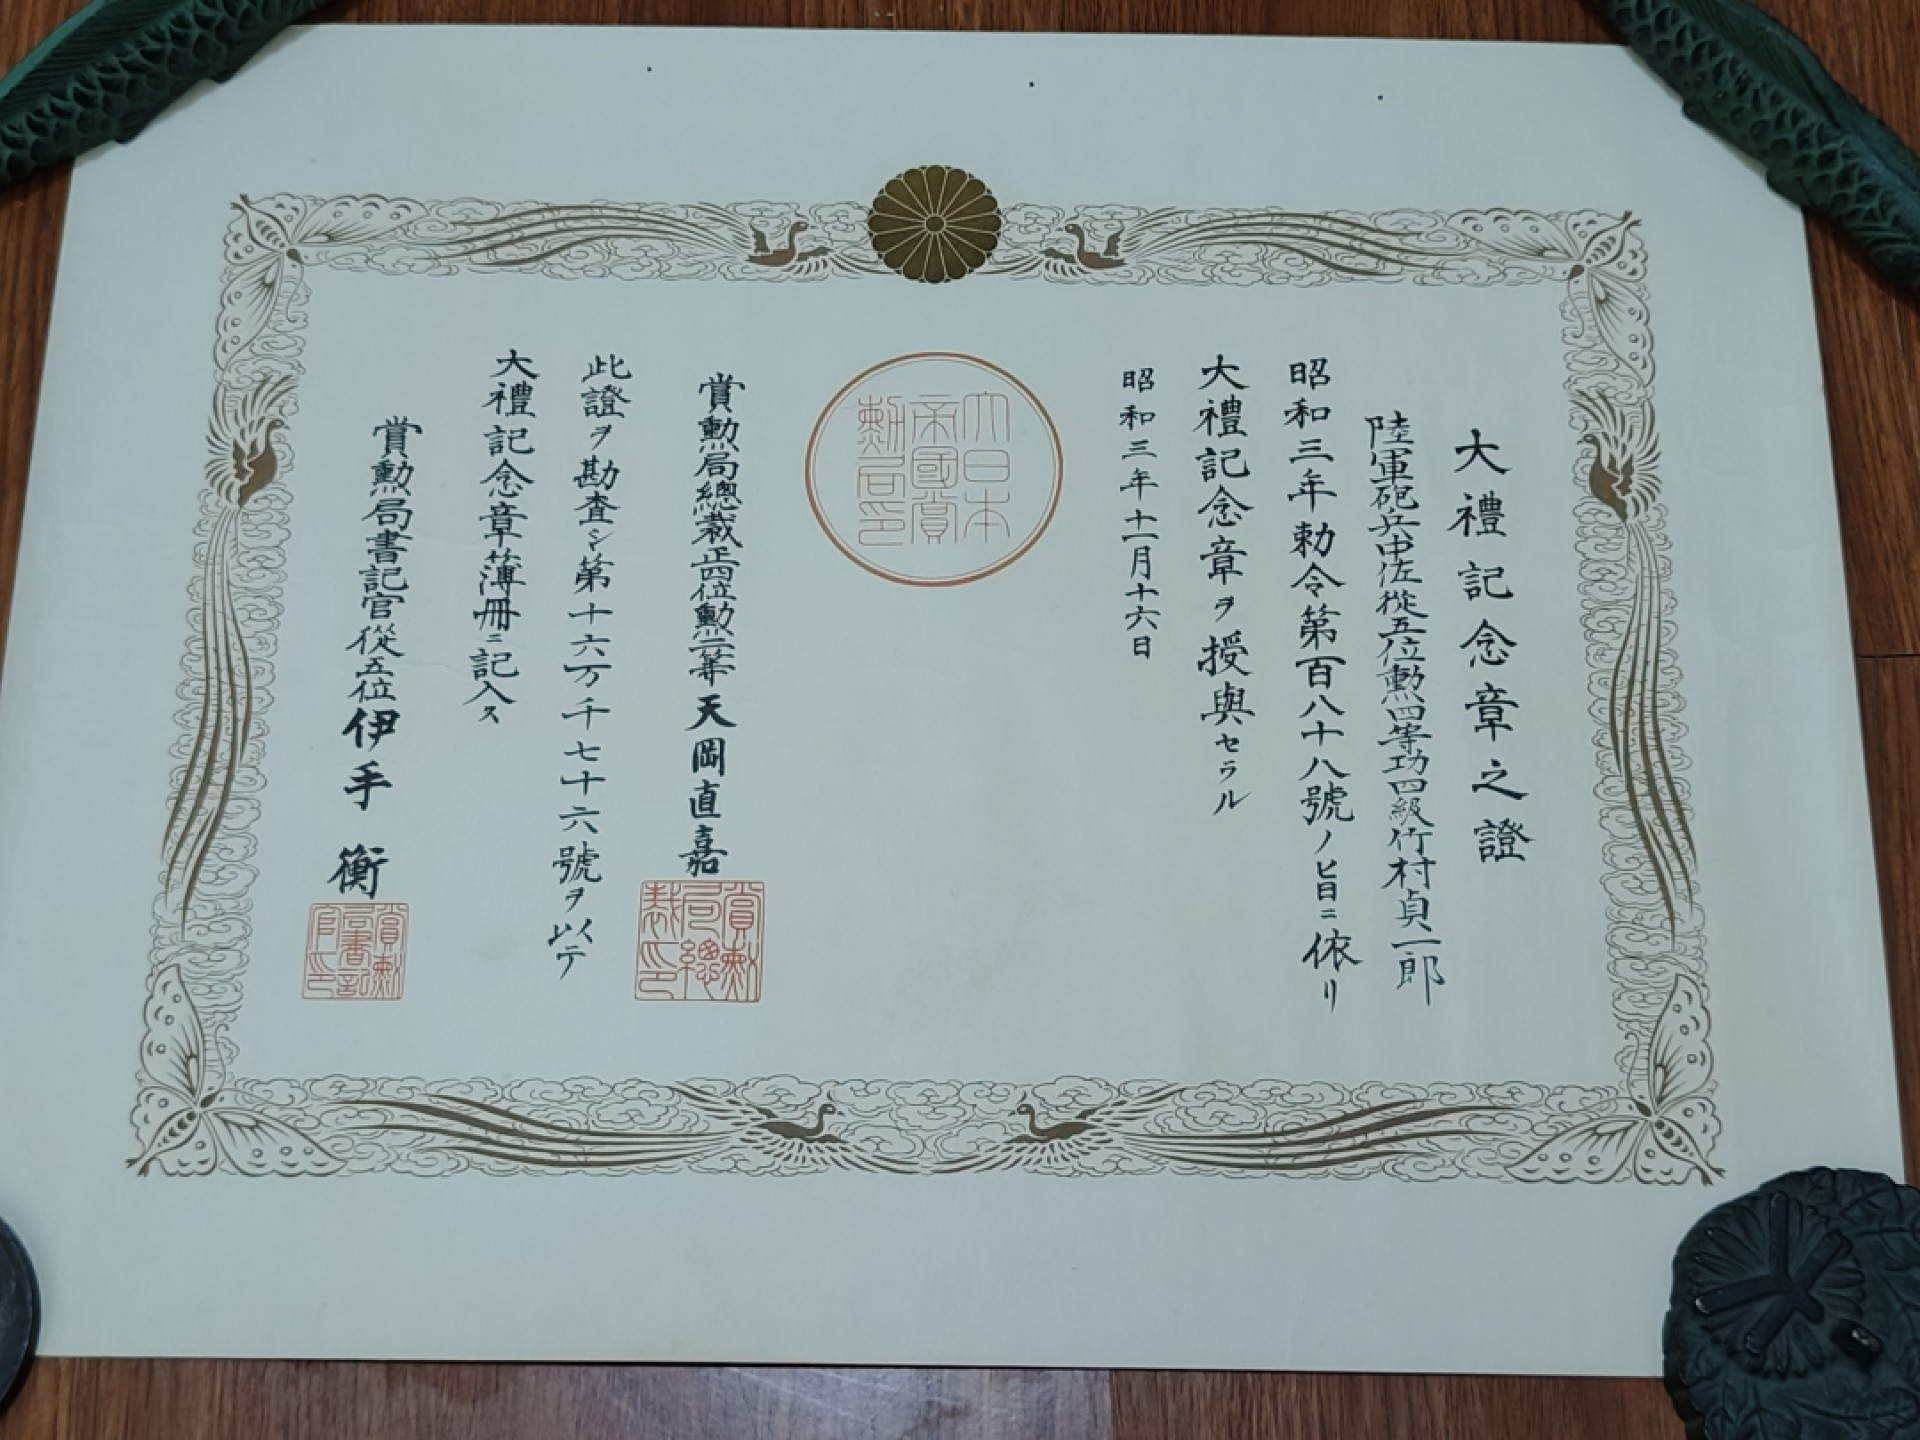 大禮記念章之證
陸軍砲兵中佐從五位勲四等功四級竹村貞一郎
昭和三年勅令第百八十八號ノ旨ニ依リ
大禮記念章ヲ授與セラル
昭和三年十一月十六日
大日本
帝國賞
勲局印
賞勲局總裁正四位勲二等天岡直嘉
賞勲
局總
裁印
此證ヲ勘査シ第十六万千七十六號ヲ以テ
大禮記念章簿冊ニ記入ス
賞勲局書記官從五位伊手衡
賞勲
局書記
官印